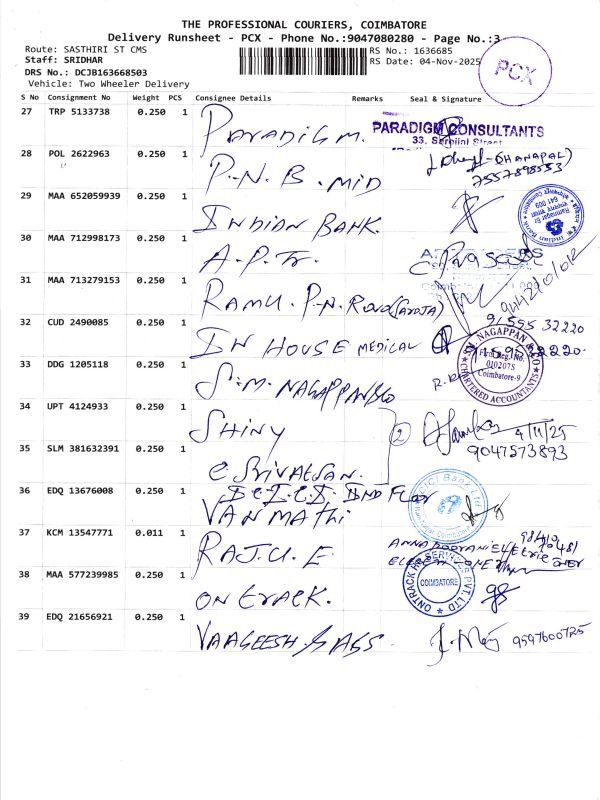 THE PROFESSIONAL COURIERS, COIMBATORE
Delivery Runsheet - PCX - Phone No.:9047080280 - Page No.:3
Route: SASTHIRI ST CMS
RS No.: 1636685
Staff: SRIDHAR
RS Date: 04-Nov-2025
DRS No.: DCJB163668503
Vehicle: Two Wheeler Delivery
PCX
S No Consignment No Weight PCS Consignee Details Remarks Seal & Signature
27 TRP 5133738 0.250 1 PARADIGM. PARADIGM CONSULTANTS
28 POL 2622963 0.250 1 P.N.B. MID DHANAPAL)
29 MAA 652059939 0.250 1 INDIAN BANK.
30 MAA 712998173 0.250 1 A.P.Tr.
31 MAA 713279153 0.250 1 RAMU. P.N. ROAD
32 CUD 2490085 0.250 1 IN HOUSE MEDICAL 91595 32220
33 DDG 1205118 0.250 1 S.M. NAGAPPAN &CO
SM. NAGAPPAN & CO
Firm Reg. No.
010207S
Coimbatore-9
CHARTERED ACCOUNTANTS
34 UPT 4124933 0.250 1 SHINY 2 4/11/25
9047573893
35 SLM 381632391 0.250 1 C SRIVATSAN.
36 EDQ 13676008 0.250 1 VANMATHI
ICICI Bank Ltd
37 KCM 13547771 0.011 1 RAJU. E.
38 MAA 577239985 0.250 1 ON TRACK.
ONTRACK HR SERVICES PVT. LTD
COIMBATORE
39 EDQ 21656921 0.250 1 VAAGEESH GAS. 9597600725